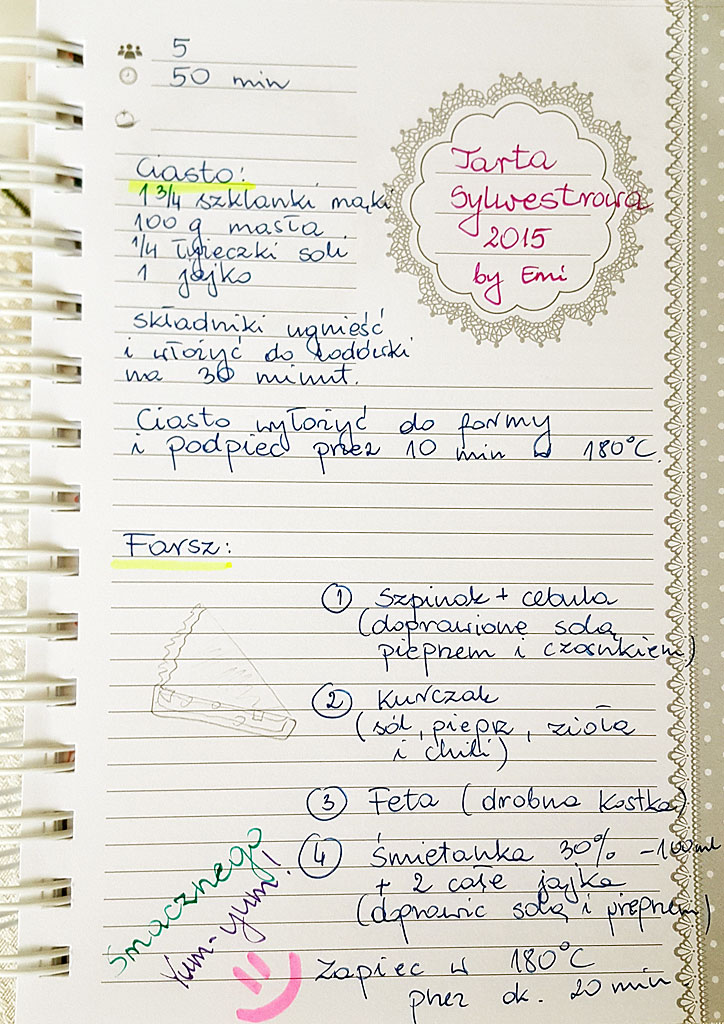 5
50 min
Tarta
Sylwestrowa
2015
by Emi
Ciasto:
1 3/4 szklanki mąki
100 g masła
1/4 łyżeczki soli
1 jajko
składniki ugnieść
i włożyć do lodówki
na 30 minut.
Ciasto wyłożyć do formy
i podpiec przez 10 min w 180°C.
Farsz:
① Szpinak + cebula
(doprawione solą,
pieprzem i czosnkiem)
② Kurczak
(sól, pieprz, zioła
i chili)
③ Feta (drobna kostka)
④ Śmietanka 30% - 100 ml
+ 2 całe jajka
(doprawić solą i pieprzem)
Zapiec w 180°C
przez ok. 20 min
Smacznego
Yum-yum!